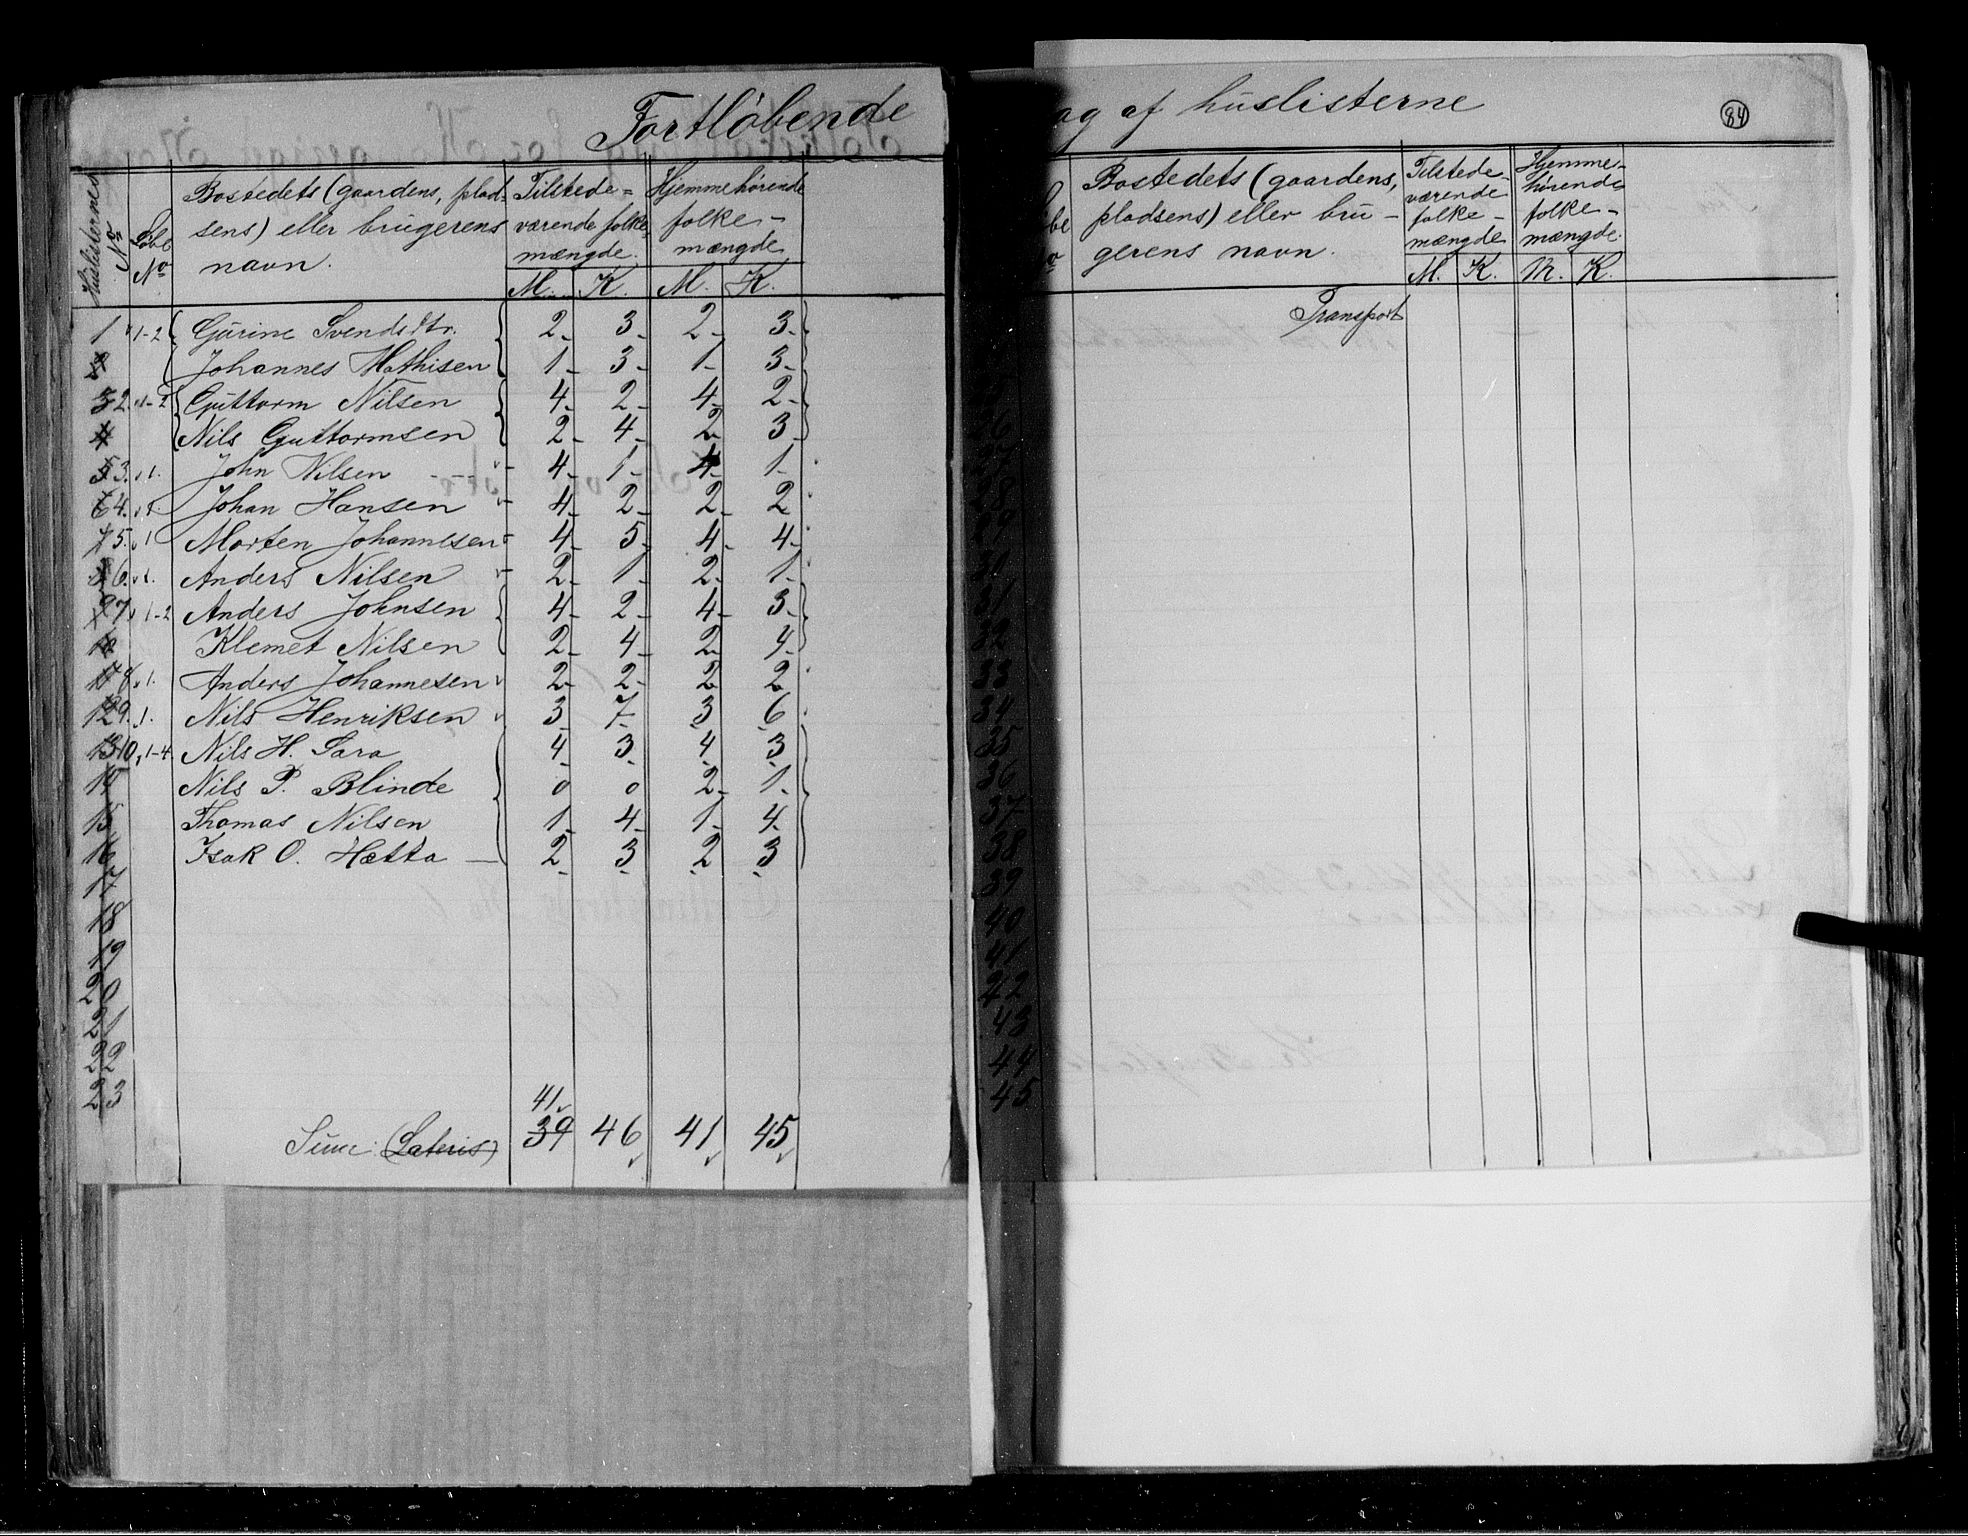 Fortløbende
Huslisternes No
Løbe No
Bostedets (gaardens, plad-
sens) eller brugerens
navn.
Tilstede-
værende folke-
mængde.
Hjemmehørende
folke-
mængde
M. K. M. K.
1 1-2 Gurine Svendsdtr. 2 3 2 3
Johannes Mathisen 1 3 1 3
3 2 1-2 Guttorm Nilsen 4 2 4 2
4 Nils Guttormsen 2 4 2 3
5 3. 1. John Nilsen 4 1 4 1
6 4. 1. Johan Hansen 4 2 2 2
7 5. 1 Morten Johannesen 4 5 4 4
6. 1. Anders Nilsen 2 1 2 1
9 7 1-2 Anders Johnsen 4 2 4 3
Klemet Nilsen 2 4 2 4
8. 1. Anders Johannesen 2 2 2 2
12 9. 1. Nils Henriksen 3 7 3 6
13 10, 1-4 Nils H. Sara 4 3 4 3
14 Nils P. Blinde 0 0 2 1
15 Thomas Nilsen 1 4 1 4
16 Isak O. Hætta 2 3 2 3
17
18
19
20
21
22
23
41
Sum: (Lateris) 39 46 41 45
ag af huslisterne
84
Bostedets (gaardens,
pladsens) eller bru-
gerens navn.
Tilstede-
værende
folke-
mængde
Hjemme-
hørende
folke-
mængde.
M. K. M. K.
Transport
33
34
35
36
37
38
39
40
41
42
43
44
45